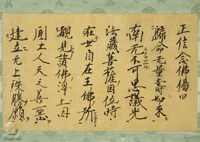 正信念佛偈曰
歸命无量壽如来
南无不可思議光
法蔵菩薩因位時
在世自在王佛所
覩見諸佛淨土因
國土人天之善悪
建立无上殊勝願